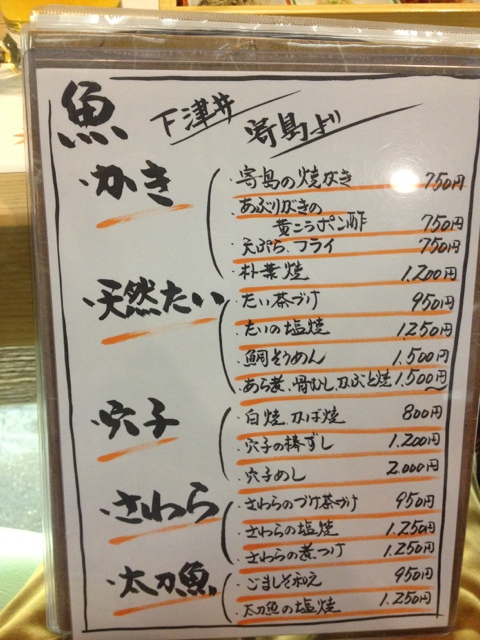 魚
下津井
寄島より
・かき
・寄島の焼がき 750円
・あぶりがきの
黄ニラポン酢 750円
・天ぷら、フライ 750円
・朴葉焼 1,200円
・天然たい
・たい茶づけ 950円
・たいの塩焼 1,250円
・鯛そうめん 1,500円
・あら煮、骨むし、かぶと焼 1,500円
・穴子
・白焼、かば焼 800円
・穴子の棒ずし 1,200円
・穴子めし 2,000円
・さわら
・さわらのづけ茶づけ 950円
・さわらの塩焼 1,250円
・さわらの煮つけ 1,250円
・太刀魚
・ごましそ和え 950円
・太刀魚の塩焼 1,250円